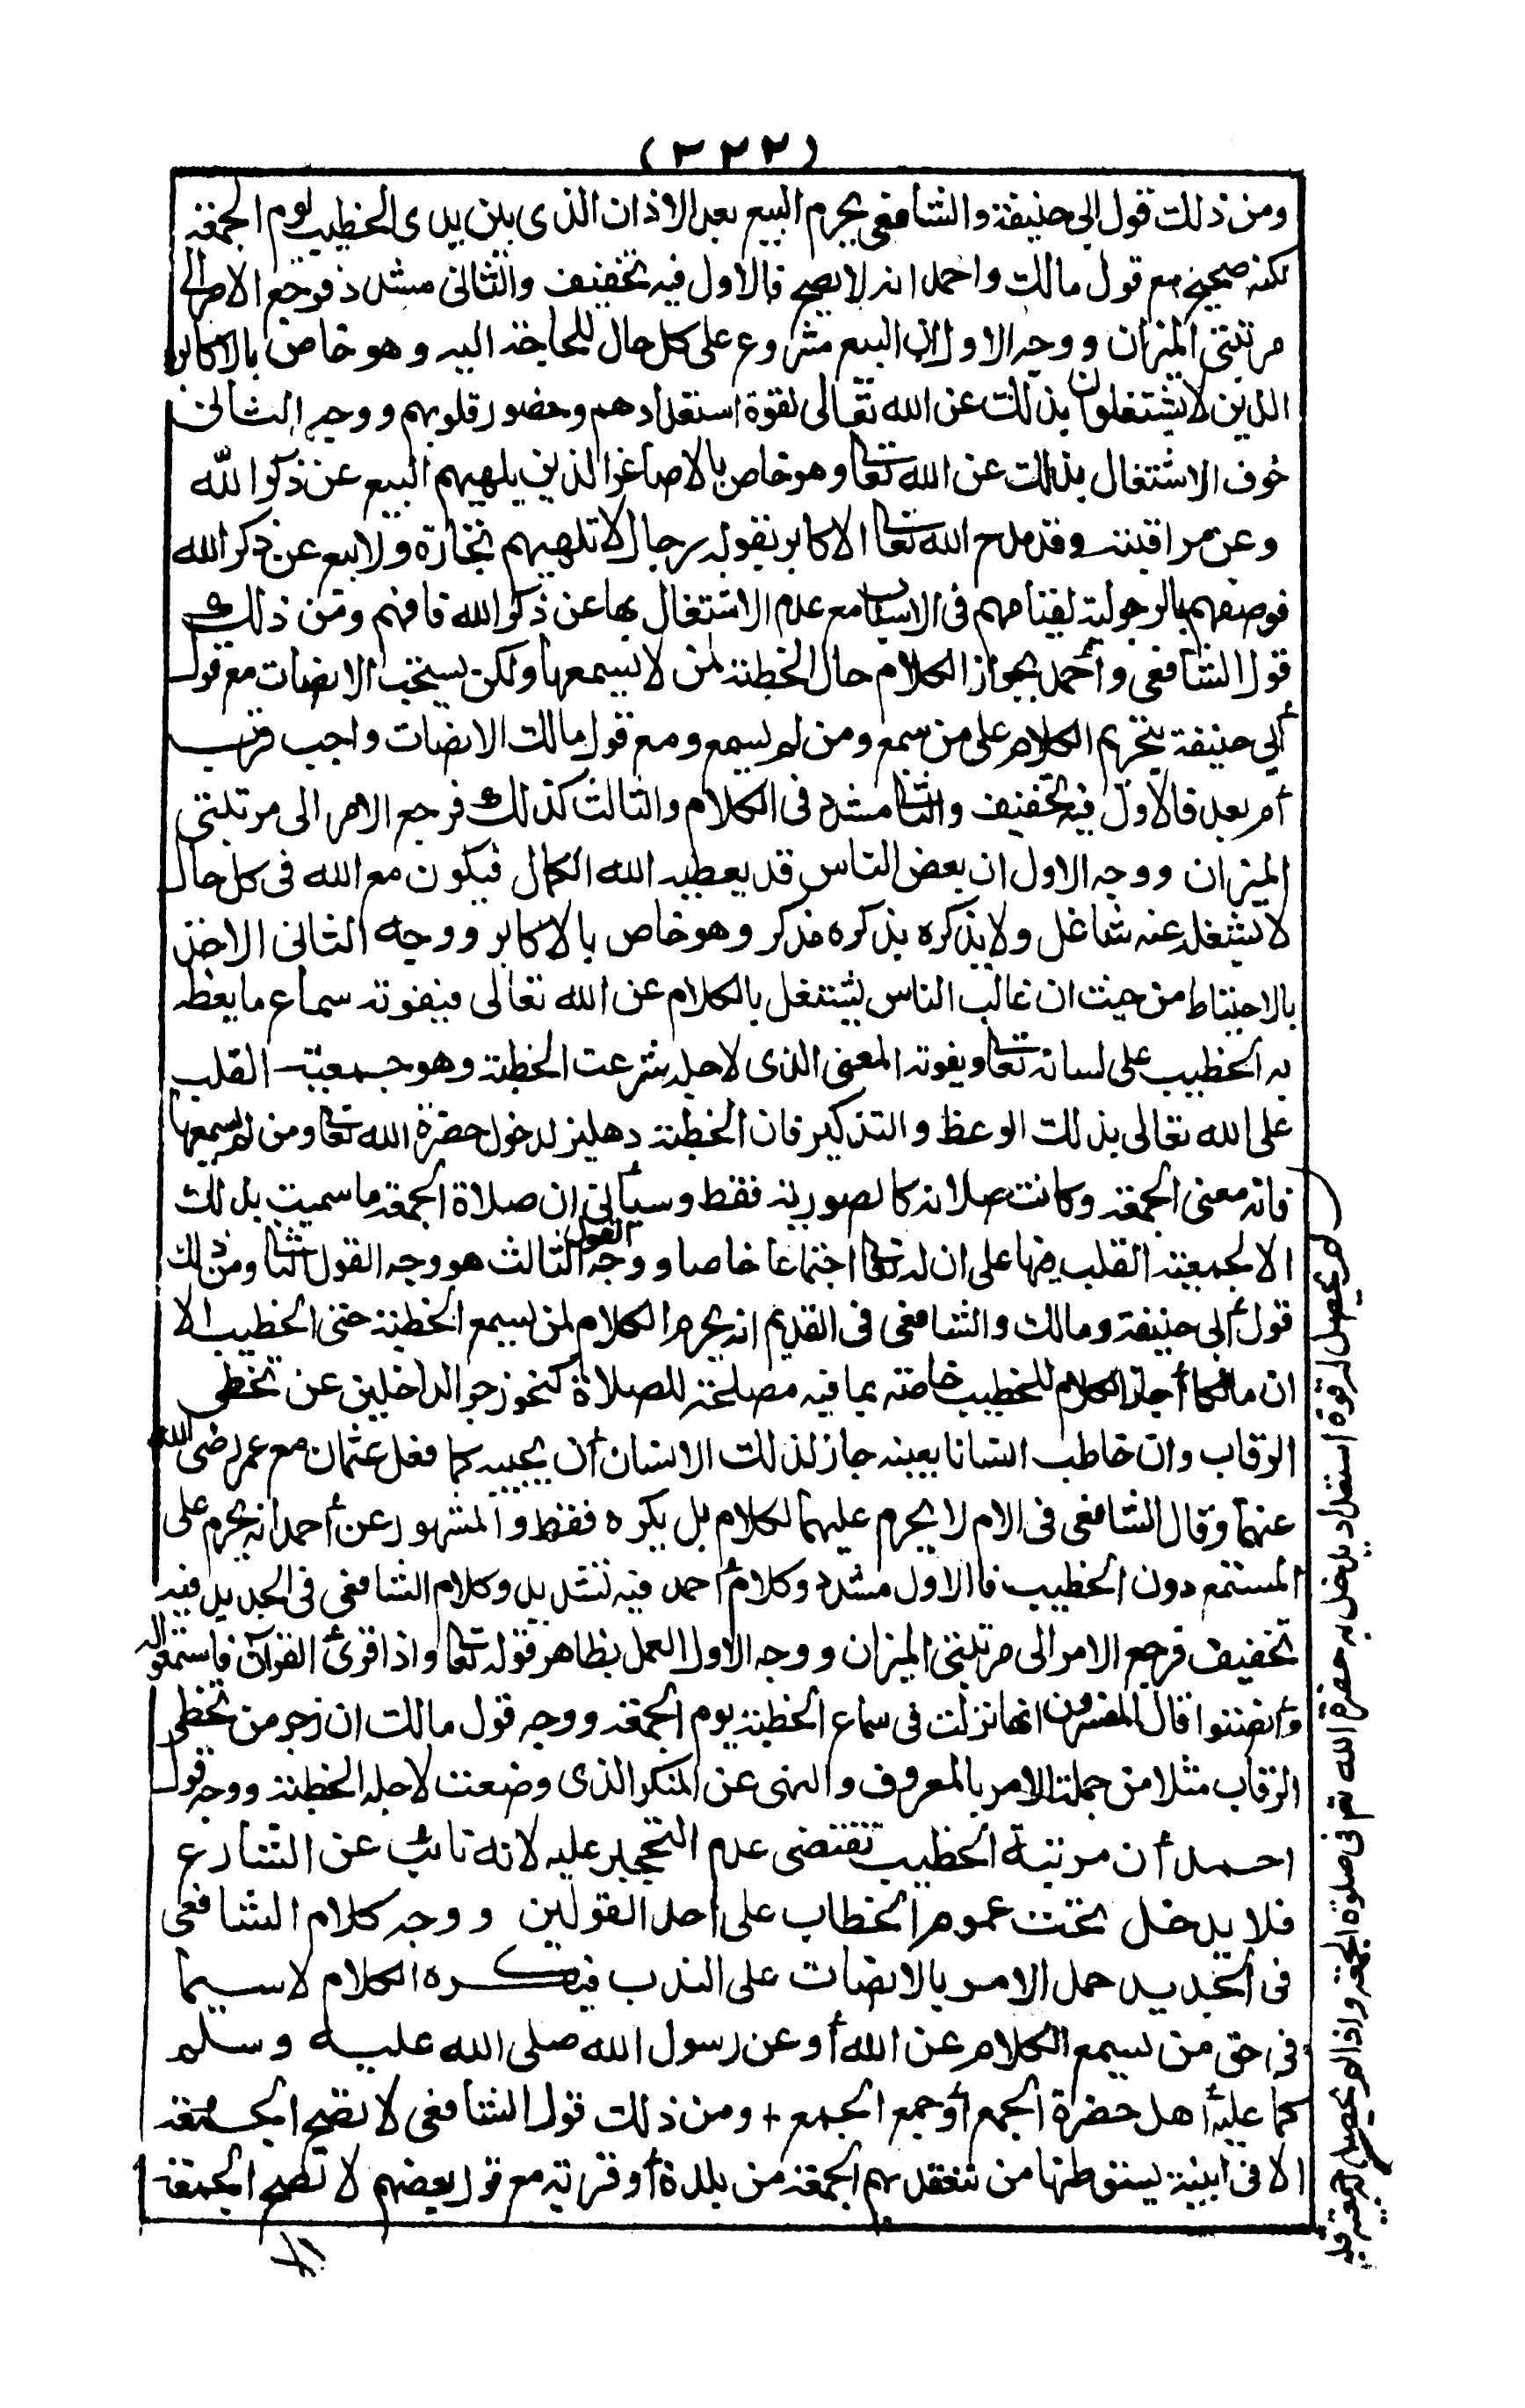 (٣٢٢)
ومن ذلك قول ابى حنيفة والشافعى يحرم البيع بعد الاذان الذى بين يدى الخطيب يوم الجمعة
لكنه صحيح مع قول مالك واحمد انه لا يصح فالاول فيه تخفيف والثانى مشدد فرجع الامر الى
مرتبتى الميزان ووجه الاول ان البيع مشروع على كل حال للحاجة اليه وهو خاص بالاكابر
الذين لا يشتغلون بذلك عن الله تعالى لقوة استعدادهم وحضور قلوبهم ووجه الثانى
خوف الاشتغال بذلك عن الله تعا وهو خاص بالاصاغر الذين يلهيهم البيع عن ذكر الله
وعن مراقبته وقد مدح الله تعا الاكابر بقوله رجال لا تلهيهم تجارة ولا بيع عن ذكر الله
فوصفهم بالرجولية لقيامهم فى الاسباب مع عدم الاشتغال بها عن ذكر الله فافهم ومن ذلك
قول الشافعى وأحمد بجواز الكلام حال الخطبة لمن لا يسمعها ولكن يستحب الانصات مع قول
أبي حنيفة بتحريم الكلام على من سمع ومن لم يسمع ومع قول مالك الانصات واجب قرب
أم بعد فالاول فيه تخفيف والثا مشدد فى الكلام والثالث كذلك فرجع الامر الى مرتبتى
الميزان ووجه الاول ان بعض الناس قد يعطيه الله الكمال فيكون مع الله فى كل حال
لا يشغله عنه شاغل ولا يذكره بذكره مذكر وهو خاص بالاكابر ووجه الثانى الاخذ
بالاحتياط من حيث ان غالب الناس يشتغل بالكلام عن الله تعالى فيفوته سماع ما يعظه
به الخطيب على لسانه تعا ويفوته المعنى الذى لاجله شرعت الخطبة وهو جمعية القلب
على الله تعالى بذلك الوعظ والتذكير فان الخطبة دهليز لدخول حضرة الله تعا ومن لم يسمعها
فاته معنى الجمعة وكانت صلاته كالصورية فقط وسيأتى ان صلاة الجمعة ما سميت بذلك
الا لجمعية القلب فيها على ان له تعا اجتماعا خاصا ووجه القول الثالث هو وجه القول الثا ومن ذلك
قول أبى حنيفة ومالك والشافعى فى القديم انه يحرم الكلام لمن يسمع الخطبة حتى الخطيب الا
ان مالكا أجاز الكلام للخطيب خاصة بما فيه مصلحة للصلاة كنحو زجر الداخلين عن تخطى
الرقاب وان خاطب انسانا بعينه جاز لذلك الانسان أن يجيبه كما فعل عثمان مع عمر رضى الله
عنهما وقال الشافعى فى الام لا يحرم عليهما الكلام بل يكره فقط والمشهور عن أحمد انه يحرم على
المستمع دون الخطيب فالاول مشدد وكلام أحمد فيه تشديد وكلام الشافعى فى الجديد فيه
تخفيف فرجع الامر الى مرتبتى الميزان ووجه الاول العمل بظاهر قوله تعا واذا قرئ القرآن فاستمعوا له
وأنصتوا قال المفسرون انها نزلت فى سماع الخطبة يوم الجمعة ووجه قول مالك ان زجر من تخطى
الرقاب مثلا من جملة الامر بالمعروف والنهى عن المنكر الذى وضعت لاجله الخطبة ووجه قول
احمد أن مرتبة الخطيب تقتضى عدم التحجير عليه لانه نائب عن الشارع
فلا يدخل تحت عموم الخطاب على احد القولين ووجه كلام الشافعى
فى الجديد حمل الامر بالانصات على الندب فيكره الكلام لا سيما
فى حق من يسمع الكلام عن الله أو عن رسول الله صلى الله عليه وسلم
كما عليه أهل حضرة الجمع أو جمع الجمع + ومن ذلك قول الشافعى لا تصح الجمعة
الا فى ابنية يستوطنها من تنعقد بهم الجمعة من بلدة أو قرية مع قول بعضهم لا تصح الجمعة
لم يحصل له قوة استعداد يدخل به حضرة الله تع فى صلوة الجمعة واذا لم يحصل له جمعية قد